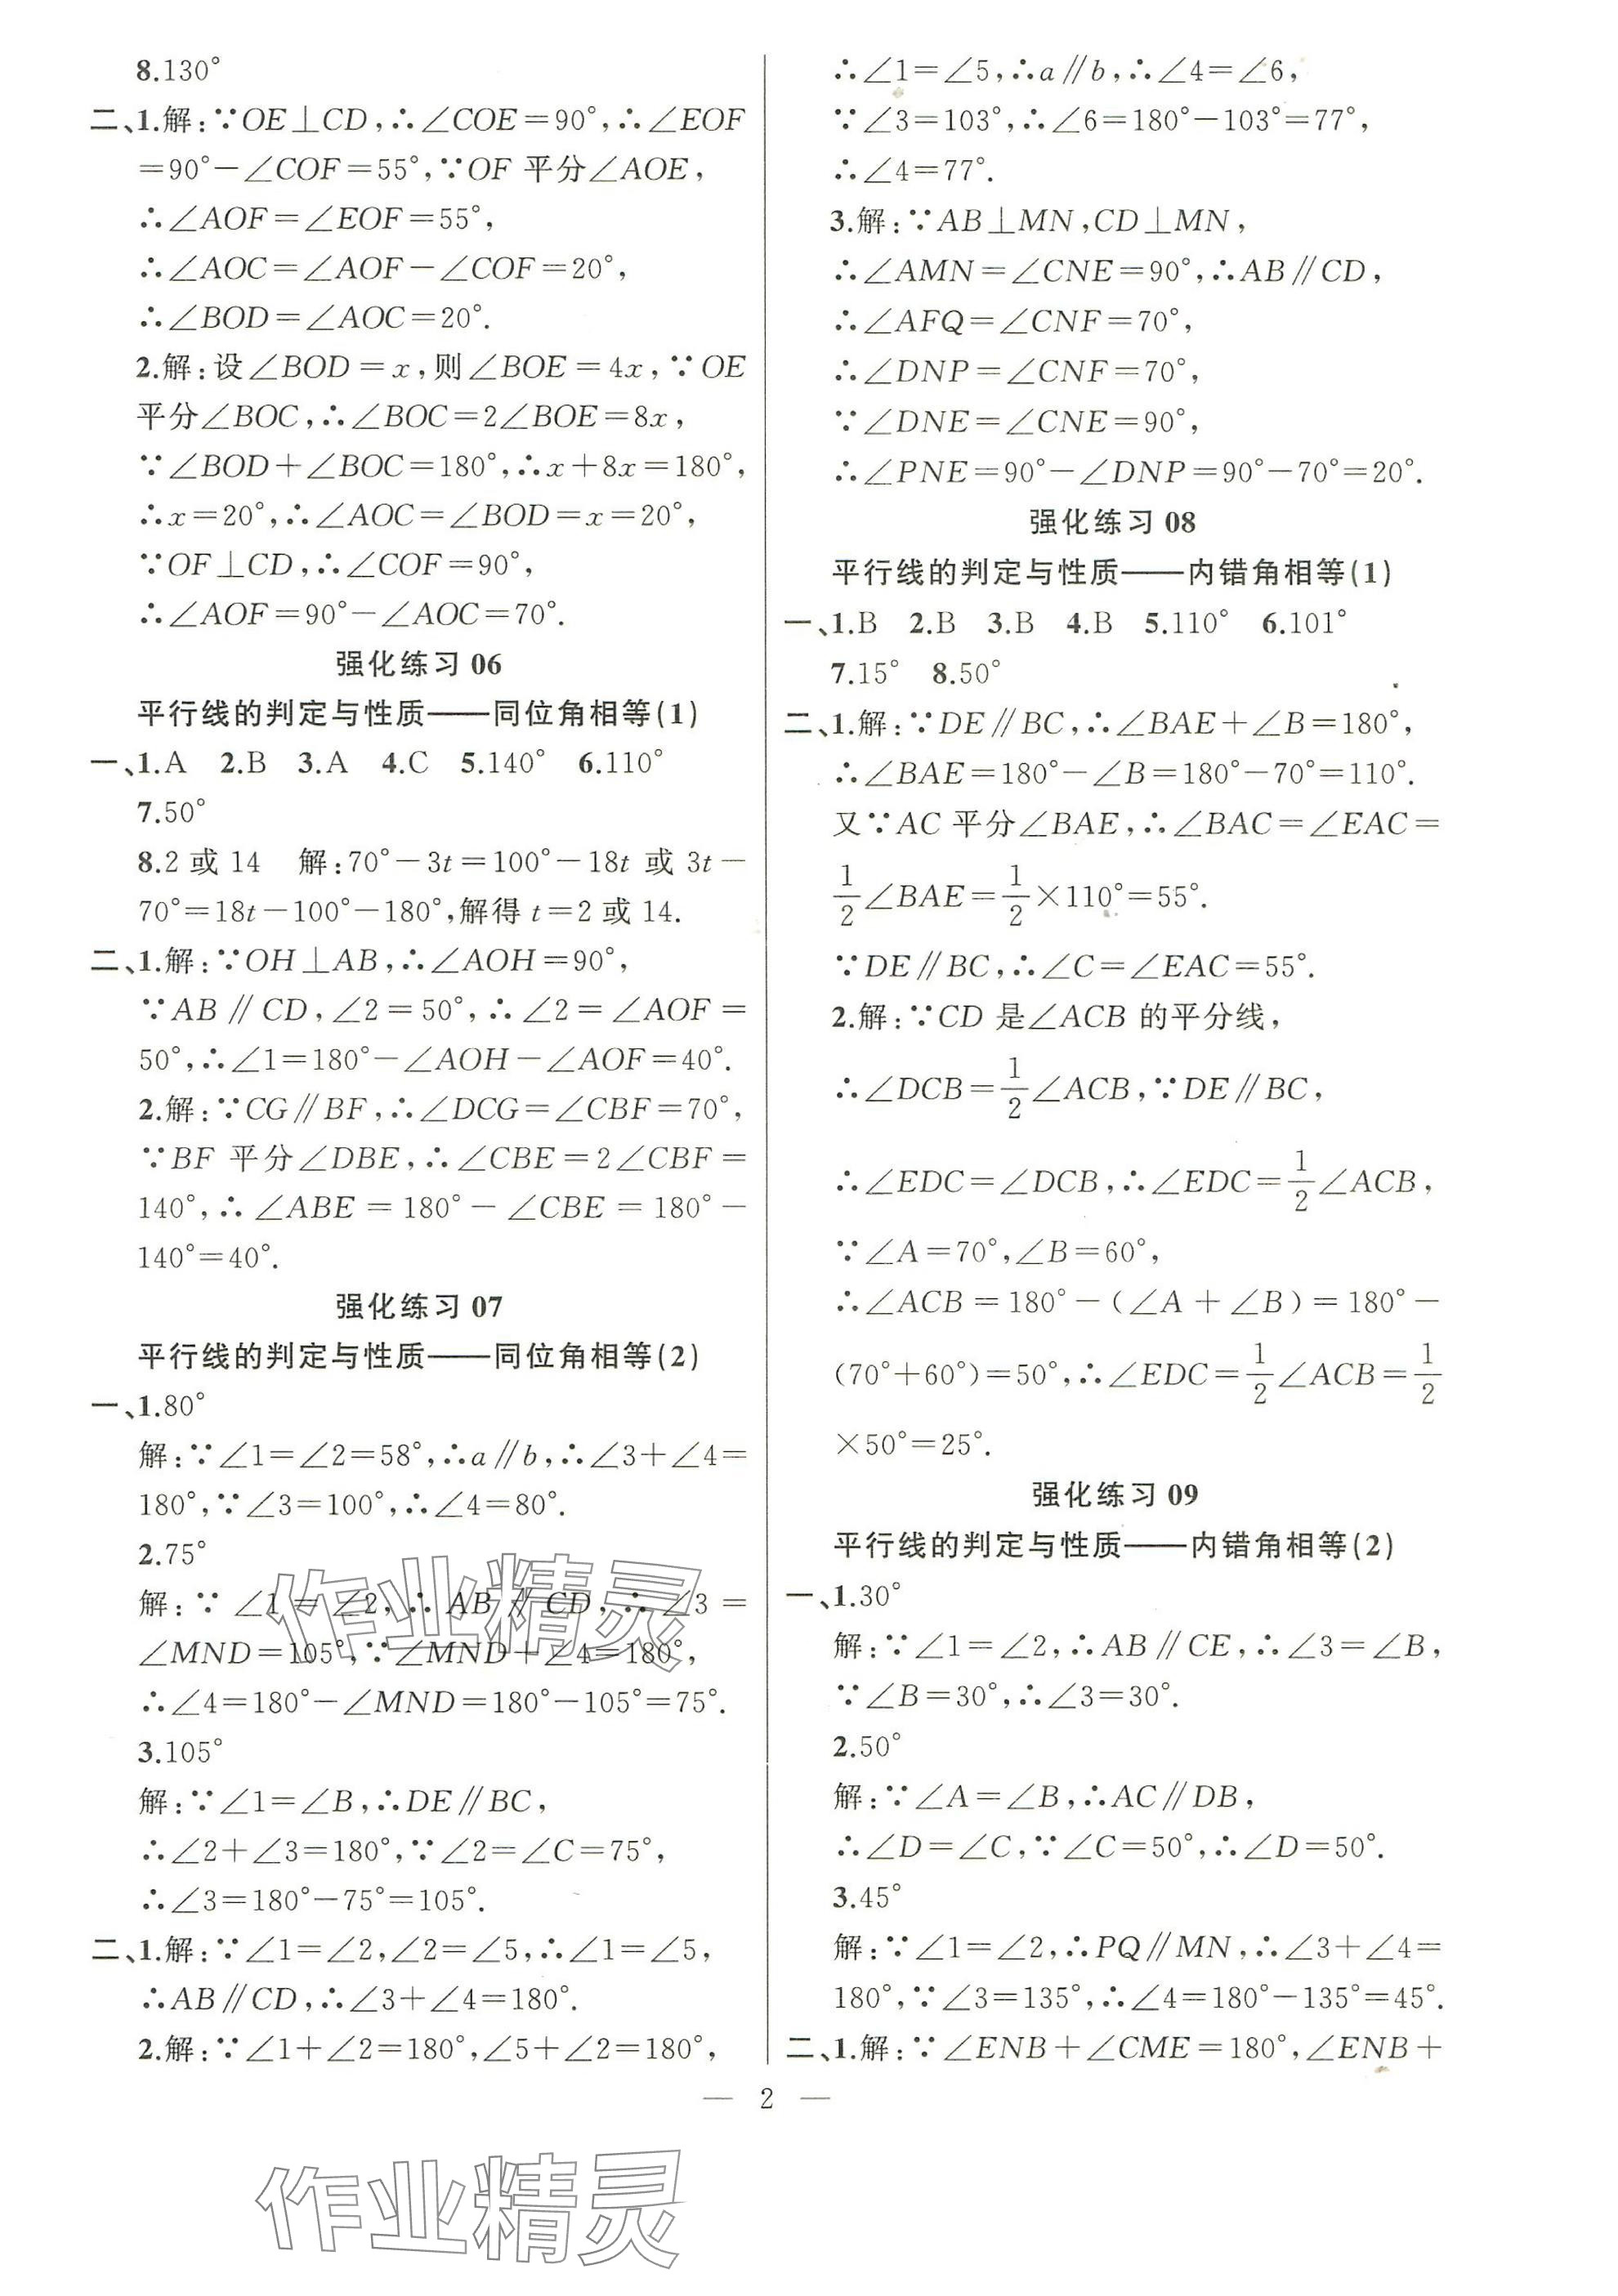 8.130°
二、1.解:∵OE⊥CD,∴∠COE=90°,∴∠EOF
=90°-∠COF=55°,∵OF 平分∠AOE,
∴∠AOF=∠EOF=55°,
∴∠AOC=∠AOF-∠COF=20°,
∴∠BOD=∠AOC=20°.
2.解:设∠BOD=x,则∠BOE=4x,∵OE
平分∠BOC,∴∠BOC=2∠BOE=8x,
∵∠BOD+∠BOC=180°,∴x+8x=180°,
∴x=20°,∴∠AOC=∠BOD=x=20°,
∵OF⊥CD,∴∠COF=90°,
∴∠AOF=90°-∠AOC=70°.
强化练习 06
平行线的判定与性质——同位角相等(1)
一、1.A 2.B 3.A 4.C 5.140° 6.110°
7.50°
8.2 或 14 解:70°-3t=100°-18t 或 3t-
70°=18t-100°-180°,解得 t=2 或 14.
二、1.解:∵OH⊥AB,∴∠AOH=90°,
∵AB∥CD,∠2=50°,∴∠2=∠AOF=
50°,∴∠1=180°-∠AOH-∠AOF=40°.
2.解:∵CG∥BF,∴∠DCG=∠CBF=70°,
∵BF 平分∠DBE,∴∠CBE=2∠CBF=
140°,∴∠ABE=180°-∠CBE=180°-
140°=40°.
强化练习 07
平行线的判定与性质——同位角相等(2)
一、1.80°
解:∵∠1=∠2=58°,∴a∥b,∴∠3+∠4=
180°,∵∠3=100°,∴∠4=80°.
2.75°
解:∵∠1=∠2,∴AB∥CD,∴∠3=
∠MND=105°,∵∠MND+∠4=180°,
∴∠4=180°-∠MND=180°-105°=75°.
3.105°
解:∵∠1=∠B,∴DE∥BC,
∴∠2+∠3=180°,∵∠2=∠C=75°,
∴∠3=180°-75°=105°.
二、1.解:∵∠1=∠2,∠2=∠5,∴∠1=∠5,
∴AB∥CD,∴∠3+∠4=180°.
2.解:∵∠1+∠2=180°,∠5+∠2=180°,
∴∠1=∠5,∴a∥b,∴∠4=∠6,
∵∠3=103°,∴∠6=180°-103°=77°,
∴∠4=77°.
3.解:∵AB⊥MN,CD⊥MN,
∴∠AMN=∠CNE=90°,∴AB∥CD,
∴∠AFQ=∠CNF=70°,
∴∠DNP=∠CNF=70°,
∵∠DNE=∠CNE=90°,
∴∠PNE=90°-∠DNP=90°-70°=20°.
强化练习 08
平行线的判定与性质——内错角相等(1)
一、1.B 2.B 3.B 4.B 5.110° 6.101°
7.15° 8.50°
二、1.解:∵DE∥BC,∴∠BAE+∠B=180°,
∴∠BAE=180°-∠B=180°-70°=110°.
又∵AC 平分∠BAE,∴∠BAC=∠EAC=
1/2∠BAE=1/2×110°=55°.
∵DE∥BC,∴∠C=∠EAC=55°.
2.解:∵CD 是∠ACB 的平分线,
∴∠DCB=1/2∠ACB,∵DE∥BC,
∴∠EDC=∠DCB,∴∠EDC=1/2∠ACB,
∵∠A=70°,∠B=60°,
∴∠ACB=180°-(∠A+∠B)=180°-
(70°+60°)=50°,∴∠EDC=1/2∠ACB=1/2
×50°=25°.
强化练习 09
平行线的判定与性质——内错角相等(2)
一、1.30°
解:∵∠1=∠2,∴AB∥CE,∴∠3=∠B,
∵∠B=30°,∴∠3=30°.
2.50°
解:∵∠A=∠B,∴AC∥DB,
∴∠D=∠C,∵∠C=50°,∴∠D=50°.
3.45°
解:∵∠1=∠2,∴PQ∥MN,∴∠3+∠4=
180°,∵∠3=135°,∴∠4=180°-135°=45°.
二、1.解:∵∠ENB+∠CME=180°,∠ENB+
— 2 —
作业精灵
作业精灵